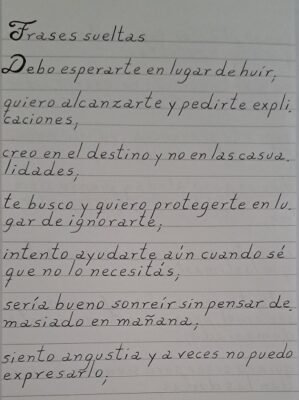 Frases sueltas
Debo esperarte en lugar de huir,
quiero alcanzarte y pedirte expli.
caciones,
creo en el destino y no en las casua.
lidades,
te busco y quiero protegerte en lu.
gar de ignorarte,
intento ayudarte aún cuando sé
que no lo necesitás,
sería bueno sonreír sin pensar de.
masiado en mañana,
siento angustia y a veces no puedo
expresarlo,